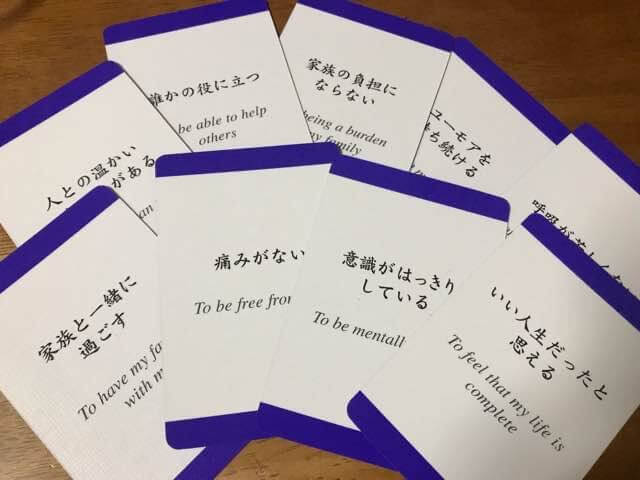 誰かの役に立つ
be able to help
others
家族の負担に
ならない
being a burden
family
ユーモアを
ち続ける
人との温かい
がある
an
呼吸が苦しくな
家族と一緒に
過ごす
To have my fa
with m
痛みがない
To be free from
意識がはっきり
している
To be mentall
いい人生だったと
思える
To feel that my life is
complete